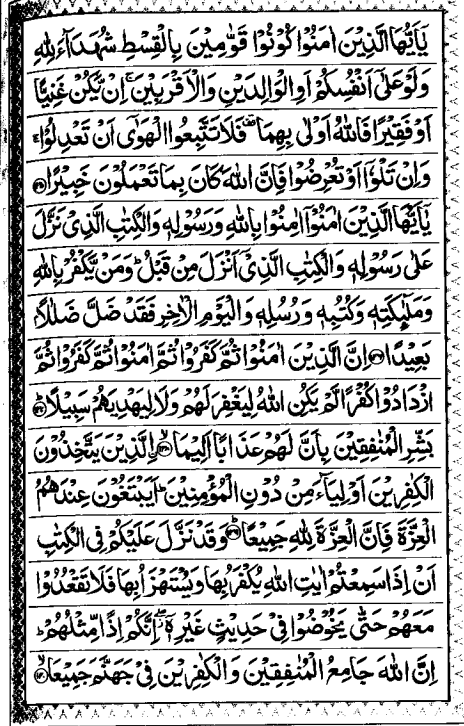 يٰۤاَيُّهَا الَّذِيْنَ اٰمَنُوْا كُوْنُوْا قَوّٰمِيْنَ بِالْقِسْطِ شُهَدَآءَ لِلّٰهِ
وَلَوْ عَلٰۤى اَنْفُسِكُمْ اَوِ الْوَالِدَيْنِ وَالْاَقْرَبِيْنَ ۚ اِنْ يَّكُنْ غَنِيًّا
اَوْ فَقِيْرًا فَاللّٰهُ اَوْلٰى بِهِمَا ۫ فَلَا تَتَّبِعُوا الْهَوٰۤى اَنْ تَعْدِلُوْا ۚ
وَاِنْ تَلْوٗۤا اَوْ تُعْرِضُوْا فَاِنَّ اللّٰهَ كَانَ بِمَا تَعْمَلُوْنَ خَبِيْرًا ﴿۱۳۵﴾
يٰۤاَيُّهَا الَّذِيْنَ اٰمَنُوْۤا اٰمِنُوْا بِاللّٰهِ وَرَسُوْلِهٖ وَالْكِتٰبِ الَّذِيْ نَزَّلَ
عَلٰى رَسُوْلِهٖ وَالْكِتٰبِ الَّذِيْۤ اَنْزَلَ مِنْ قَبْلُ ؕ وَمَنْ يَّكْفُرْ بِاللّٰهِ
وَمَلٰٓئِكَتِهٖ وَكُتُبِهٖ وَرُسُلِهٖ وَالْيَوْمِ الْاٰخِرِ فَقَدْ ضَلَّ ضَلٰلًاۢ
بَعِيْدًا ﴿۱۳۶﴾ اِنَّ الَّذِيْنَ اٰمَنُوْا ثُمَّ كَفَرُوْا ثُمَّ اٰمَنُوْا ثُمَّ كَفَرُوْا ثُمَّ
ازْدَادُوْا كُفْرًا لَّمْ يَكُنِ اللّٰهُ لِيَغْفِرَ لَهُمْ وَلَا لِيَهْدِيَهُمْ سَبِيْلًا ؕ﴿۱۳۷﴾
بَشِّرِ الْمُنٰفِقِيْنَ بِاَنَّ لَهُمْ عَذَابًا اَلِيْمًا ۙ﴿۱۳۸﴾ الَّذِيْنَ يَتَّخِذُوْنَ
الْكٰفِرِيْنَ اَوْلِيَآءَ مِنْ دُوْنِ الْمُؤْمِنِيْنَ ؕ اَيَبْتَغُوْنَ عِنْدَهُمُ
الْعِزَّةَ فَاِنَّ الْعِزَّةَ لِلّٰهِ جَمِيْعًا ؕ﴿۱۳۹﴾ وَقَدْ نَزَّلَ عَلَيْكُمْ فِى الْكِتٰبِ
اَنْ اِذَا سَمِعْتُمْ اٰيٰتِ اللّٰهِ يُكْفَرُ بِهَا وَيُسْتَهْزَاُ بِهَا فَلَا تَقْعُدُوْا
مَعَهُمْ حَتّٰى يَخُوْضُوْا فِيْ حَدِيْثٍ غَيْرِهٖۤ ۖ اِنَّكُمْ اِذًا مِّثْلُهُمْ ؕ
اِنَّ اللّٰهَ جَامِعُ الْمُنٰفِقِيْنَ وَالْكٰفِرِيْنَ فِيْ جَهَنَّمَ جَمِيْعًا ۙ﴿۱۴۰﴾